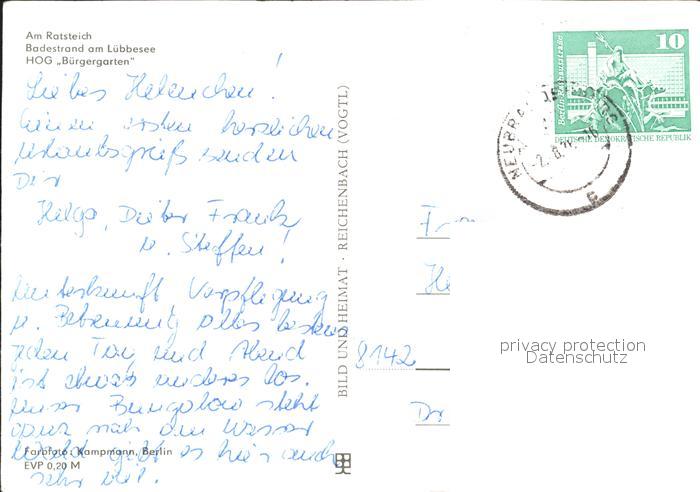 Am Ratsteich
Badestrand am Lübbesee
HOG „Bürgergarten"
Liebes Helenchen!
Einen ersten herzlichen
Urlaubsgruß senden
Dir
Helga, Dieter Frank
u. Steffen!
Unterkunft Verpflegung
u. Betreuung alles bestens
jeden Tag und Abend
ist etwas anderes los.
Unser Bungalow steht
ganz nah am Wasser
Wald gibt es hier auch
sehr viel.
Farbfoto: Kampmann, Berlin
EVP 0,20 M
BILD UND HEIMAT · REICHENBACH (VOGTL)
10
Berlin, Rathausstraße
DEUTSCHE DEMOKRATISCHE REPUBLIK
Fr
He
8142
Dr
privacy protection
Datenschutz